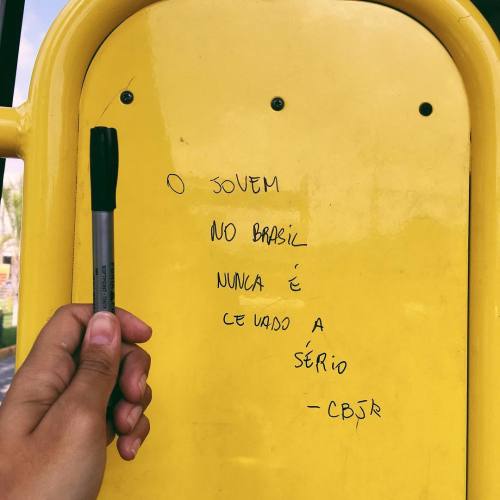 O JOVEM
NO BRASIL
NUNCA É
LEVADO A
SÉRIO
- CBJR